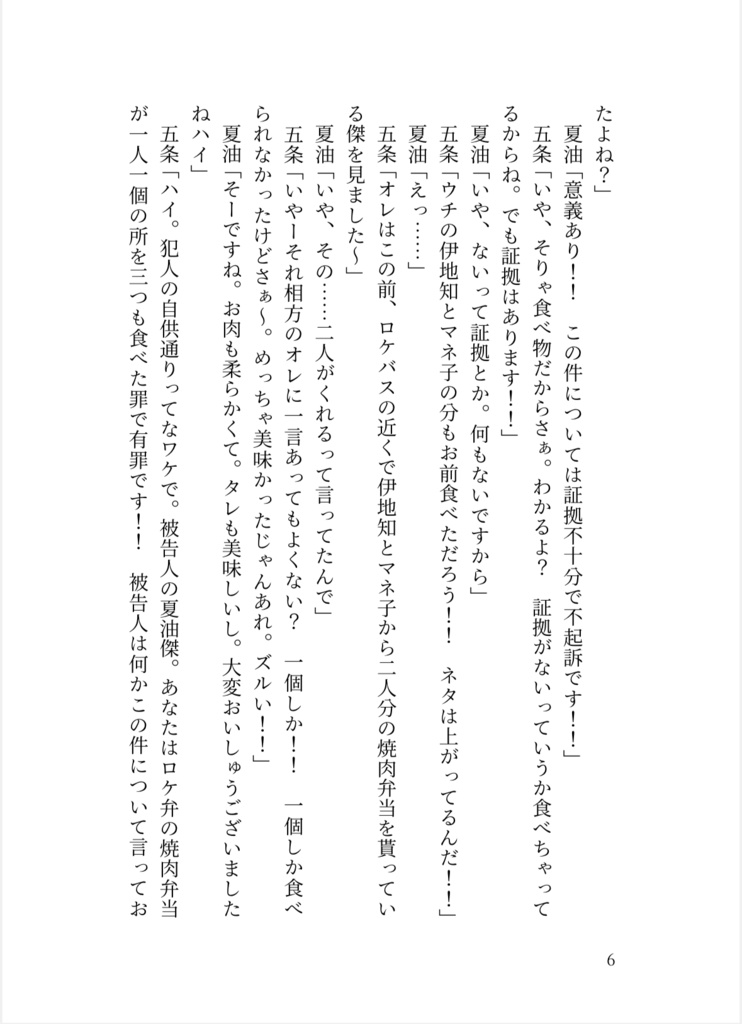 たよね？」
　夏油「意義あり！！　この件については証拠不十分で不起訴です！！」
　五条「いや、そりゃ食べ物だからさぁ。わかるよ？　証拠がないっていうか食べちゃって
るからね。でも証拠はあります！！」
　夏油「いや、ないって証拠とか。何もないですから」
　五条「ウチの伊地知とマネ子の分もお前食べただろう！！　ネタは上がってるんだ！！」
　夏油「えっ……」
　五条「オレはこの前、ロケバスの近くで伊地知とマネ子から二人分の焼肉弁当を貰ってい
る傑を見ました～」
　夏油「いや、その……二人がくれるって言ってたんで」
　五条「いやーそれ相方のオレに一言あってもよくない？　一個しか！！　一個しか食べ
られなかったけどさぁ～。めっちゃ美味かったじゃんあれ。ズルい！！」
　夏油「そーですね。お肉も柔らかくて。タレも美味しいし。大変おいしゅうございました
ねハイ」
　五条「ハイ。犯人の自供通りってなワケで。被告人の夏油傑。あなたはロケ弁の焼肉弁当
が一人一個の所を三つも食べた罪で有罪です！！　被告人は何かこの件について言ってお
6